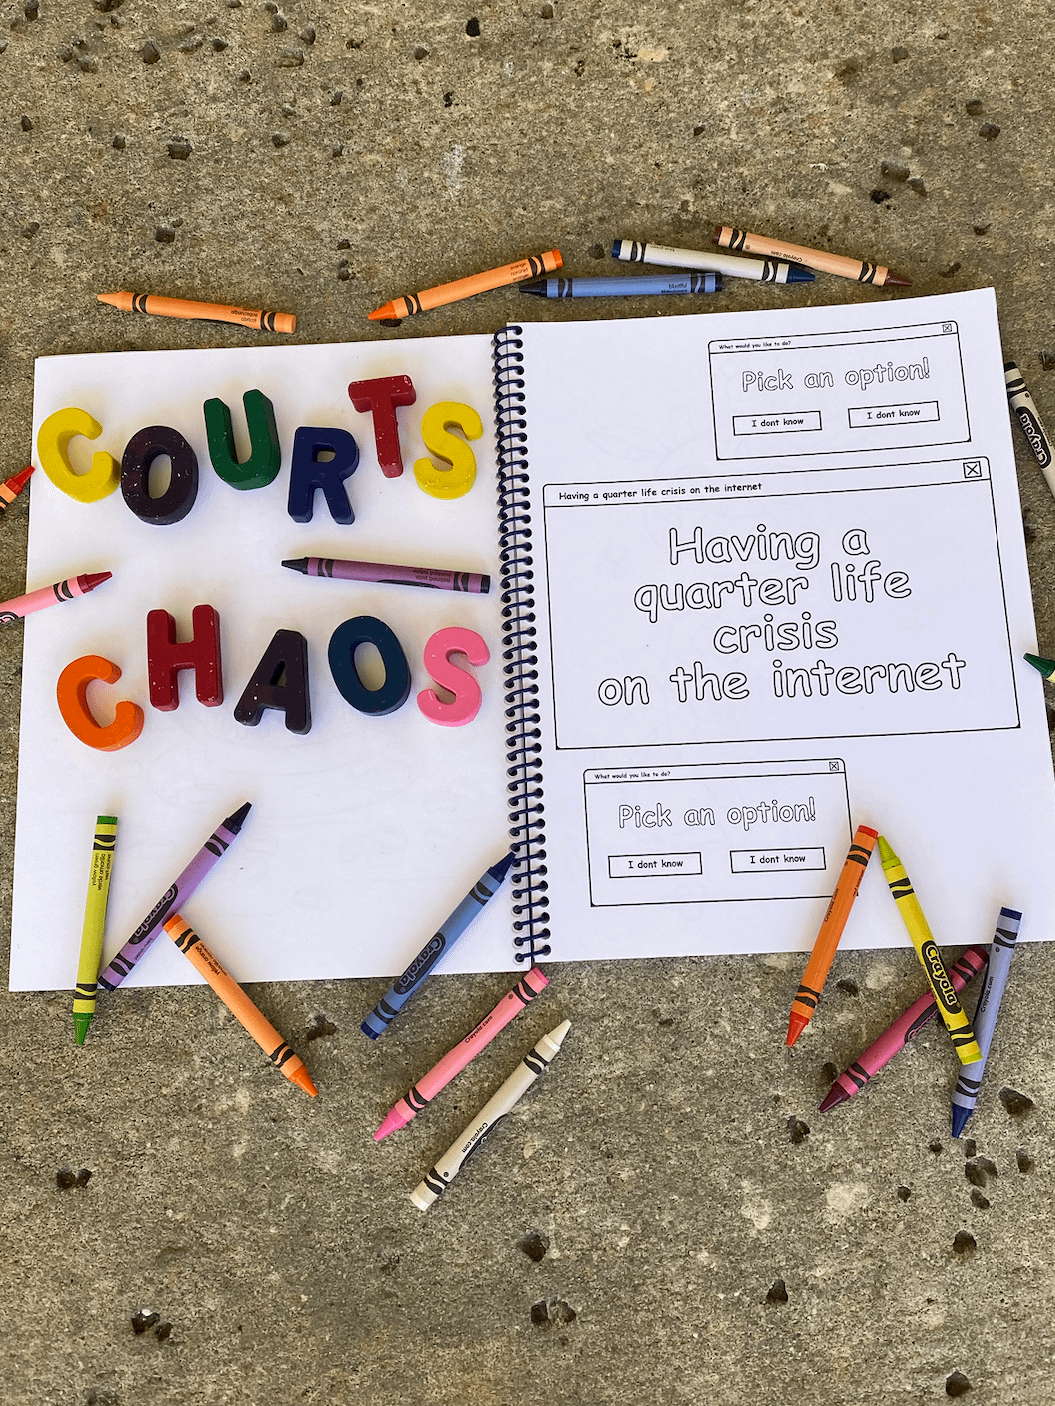 COURTS
CHAOS
What would you like to do?
Pick an option!
I dont know
I dont know
Having a quarter life crisis on the internet
Having a
quarter life
crisis
on the internet
What would you like to do?
Pick an option!
I dont know
I dont know
Crayola.com
Crayola
Crayola
Crayola
Crayola.com
Crayola.com
Crayola
Crayola.com